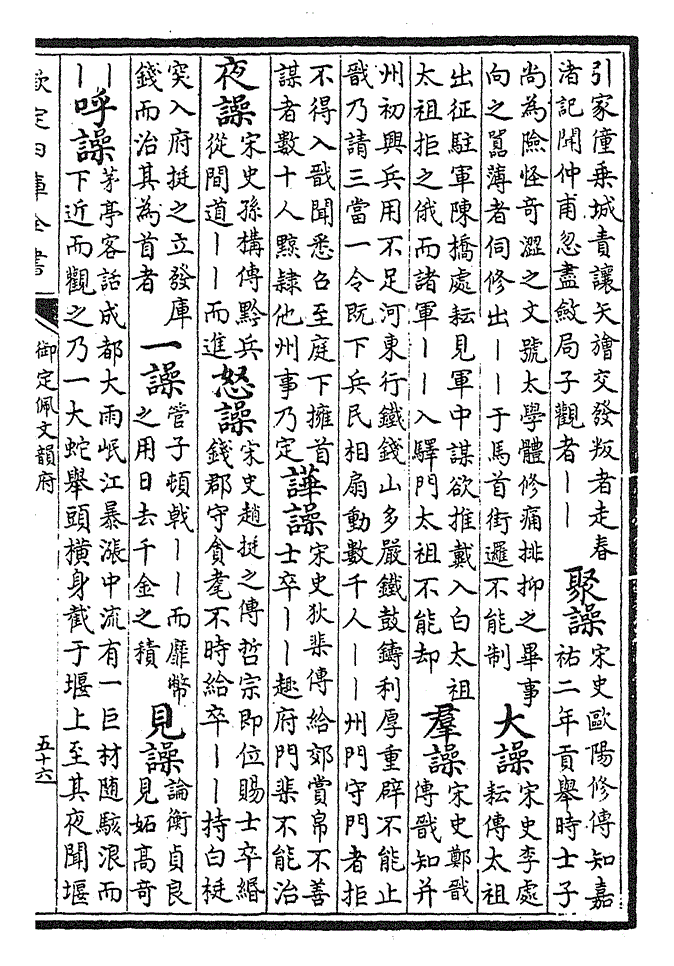 引家僮乘城責讓矢旝交發叛者走春
渚記聞仲甫忽盡斂局子觀者丨丨
聚譟
宋史歐陽修傳知嘉
祐二年貢舉時士子
尚為險怪奇澀之文號太學體修痛排抑之畢事
向之囂薄者伺修出丨丨于馬首街邏不能制
大譟
宋史李處
耘傳太祖
出征駐軍陳橋處耘見軍中謀欲推戴入白太祖
太祖拒之俄而諸軍丨丨入驛門太祖不能却
羣譟
宋史鄭戩
傳戩知并
州初興兵用不足河東行鐵錢山多嚴鐵鼓鑄利厚重辟不能止
戩乃請三當一令既下兵民相扇動數千人丨丨州門守門者拒
不得入戩聞悉召至庭下擁首
謀者數十人黥隸他州事乃定
譁譟
宋史狄棐傳給郊賞帛不善
士卒丨丨趣府門棐不能治
夜譟
宋史孫構傳黔兵
從間道丨丨而進
怒譟
宋史趙挺之傳哲宗即位賜士卒緡
錢郡守貪耄不時給卒丨丨持白梃
突入府挺之立發庫
錢而治其為首者
一譟
管子頓戟丨丨而靡幣
之用日去千金之積
見譟
論衡貞良
見妬高奇
丨
丨
呼譟
茅亭客話成都大雨岷江暴漲中流有一巨材随駭浪而
下近而觀之乃一大蛇舉頭橫身截于堰上至其夜聞堰
欽定四庫全書
御定佩文韻府
五十六